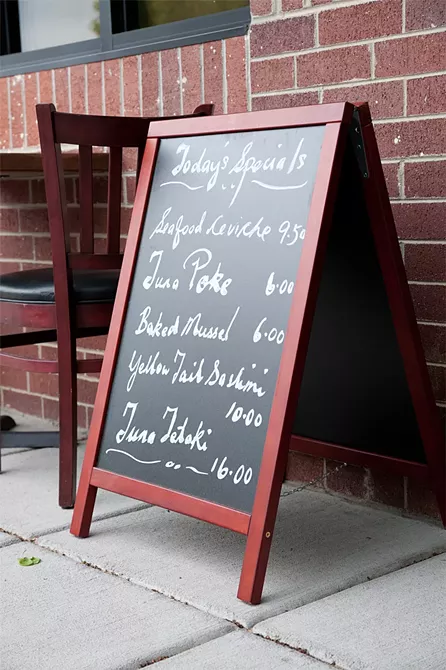 Today's Specials
Seafood Ceviche 9.50
Tuna Poke 6.00
Baked Mussel 6.00
Yellow Tail Sashimi
10.00
Tuna Tataki
16.00